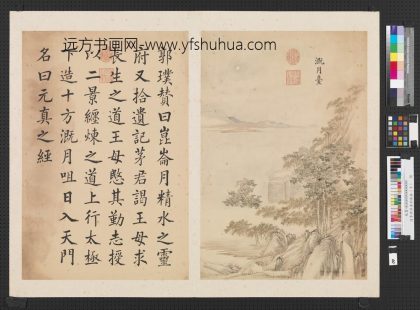 远方书画网-www.yfshuhua.com
溉月臺
郭璞贊曰崑崙月精水之靈
府又拾遺記茅君謁王母求
長生之道王母愍其勤志授
以二景纏煉之道上行太極
下造十方溉月咀日入天門
名曰元真之經